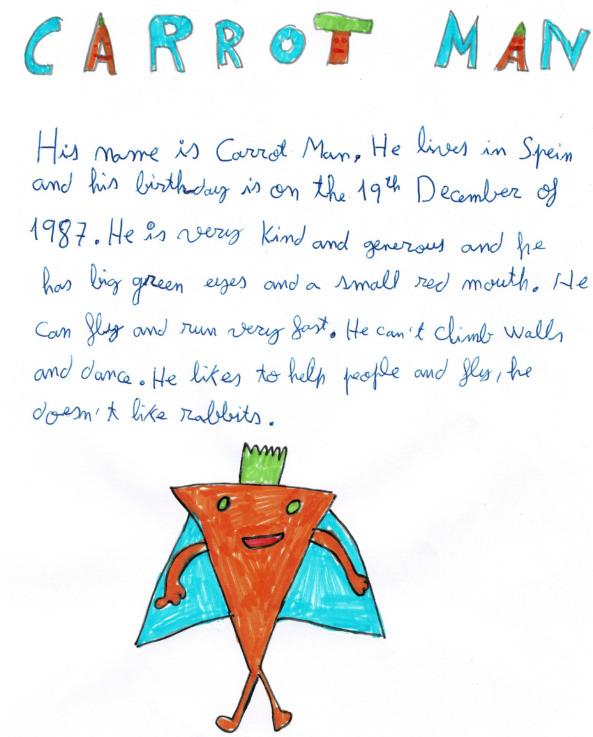 CARROT MAN
His name is Carrot Man, He lives in Spein
and his birthday is on the 19th December of
1987. He is very Kind and generous and he
has big green eyes and a small red mouth. He
can fly and run very fast. He can't climb walls
and dance. He likes to help people and fly, he
doesn't like rabbits.